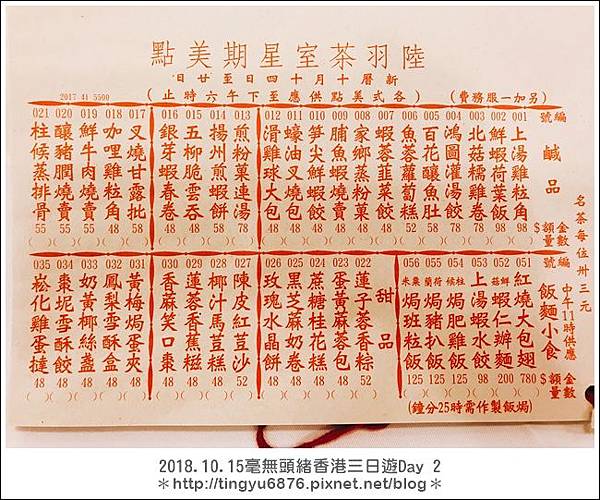 陸羽茶室星期美點
新曆十月十四日至廿日
(各式美點供應至下午六時止)
(另加一服務費)
2017 41 5500
名茶每位卅三元
編號
鹹品
金額 $
數量
001 上湯雞粒角 98
002 鮮蝦荷葉飯 98
003 北菇糯雞卷 78
004 鴻圖灌湯餃 78
005 百花釀魚肚 58
006 魚蓉蘿蔔糕 52
007 蝦蓉韮菜餃 48
008 家鄉蒸粉菓 48
009 脯魚蝦燒賣 48
010 笋尖鮮蝦餃 48
011 蠔油叉燒包 48
012 滑雞球大包 48
013 煎粉菓連湯 58
014 揚州煎蝦餅 48
015 五柳脆雲吞 48
016 銀芽蝦春卷 48
017 叉燒甘露批 58
018 咖哩雞粒角 48
019 鮮牛肉燒賣 55
020 釀豬潤燒賣 55
021 柱候蒸排骨 55
編號
飯麵小食
中午11時供應
金額 $
數量
051 紅燒大包翅 780
052 鮮菇蝦仁辦麵 200
053 上湯蝦水餃 98
054 柱候焗肥雞飯 125
055 荷蘭焗豬扒飯 125
056 粟米焗班粒飯 125
(焗飯製作需時25分鐘)
甜品
022 蓮子蓉香粽 52
023 蛋黃蔴蓉包 48
024 蔗糖桂花糕 48
025 黑芝蔴奶卷 48
026 玫瑰水晶餅 48
027 陳皮紅荳沙 52
028 椰汁馬荳糕 48
029 蓮蓉香蕉糍 48
030 香蔴笑口棗 48
031 黃梅焗蛋夾 48
032 鳳梨雪酥盒 48
033 奶黃椰絲盞 48
034 棗坭雪酥餃 48
035 崧化雞蛋撻 48
2018.10.15毫無頭緒香港三日遊Day 2
＊http://tingyu6876.pixnet.net/blog＊